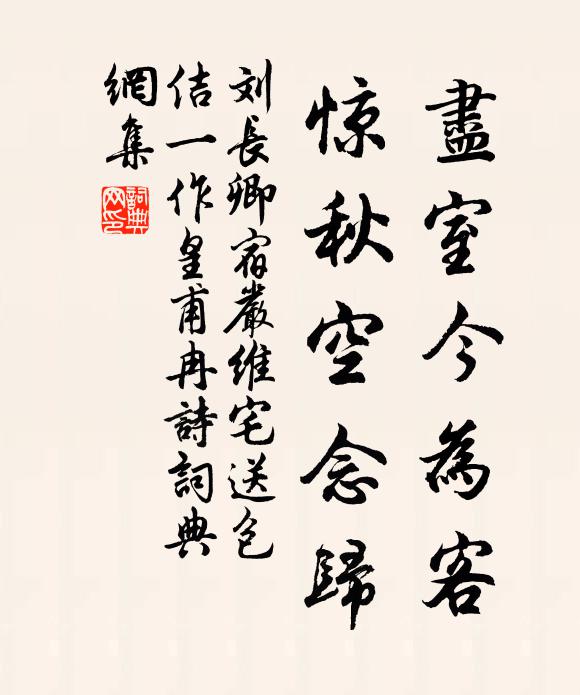 盡室今為客
惊秋空念歸
刘長卿宿嚴維宅送包
佶一作皇甫冉詩詞典
網集
詞典網印